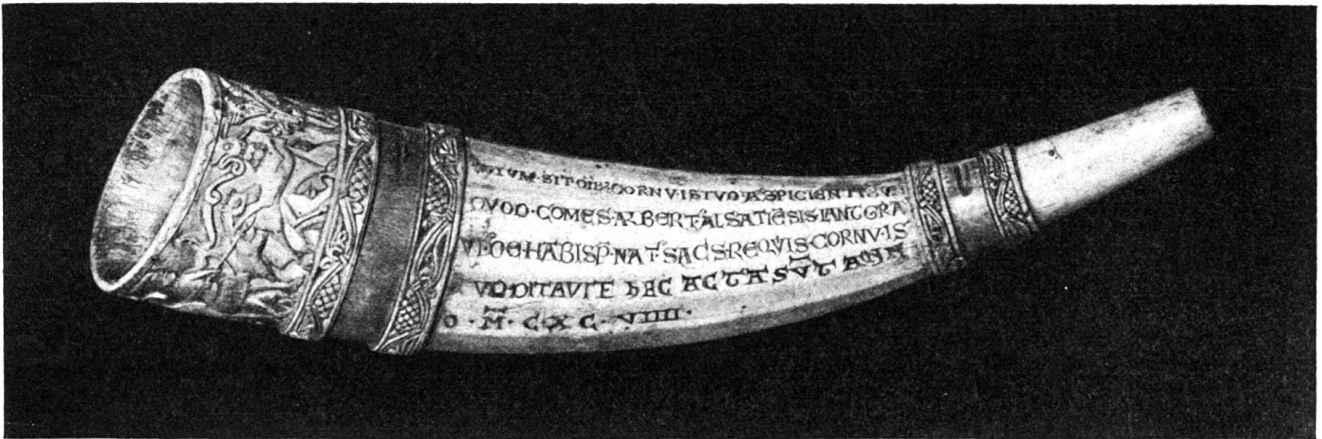 SIT CORNV ISTVD ASPICIENTIBVS
QVOD·COMES·ALBERT ALSATIESIS LANTGRA
DE HABISP·NAT·SACIS REQVIIS·CORNV·IS
DITAVIT E hEC ACTA SVT ANN
O·M·C·XC·VIIII·